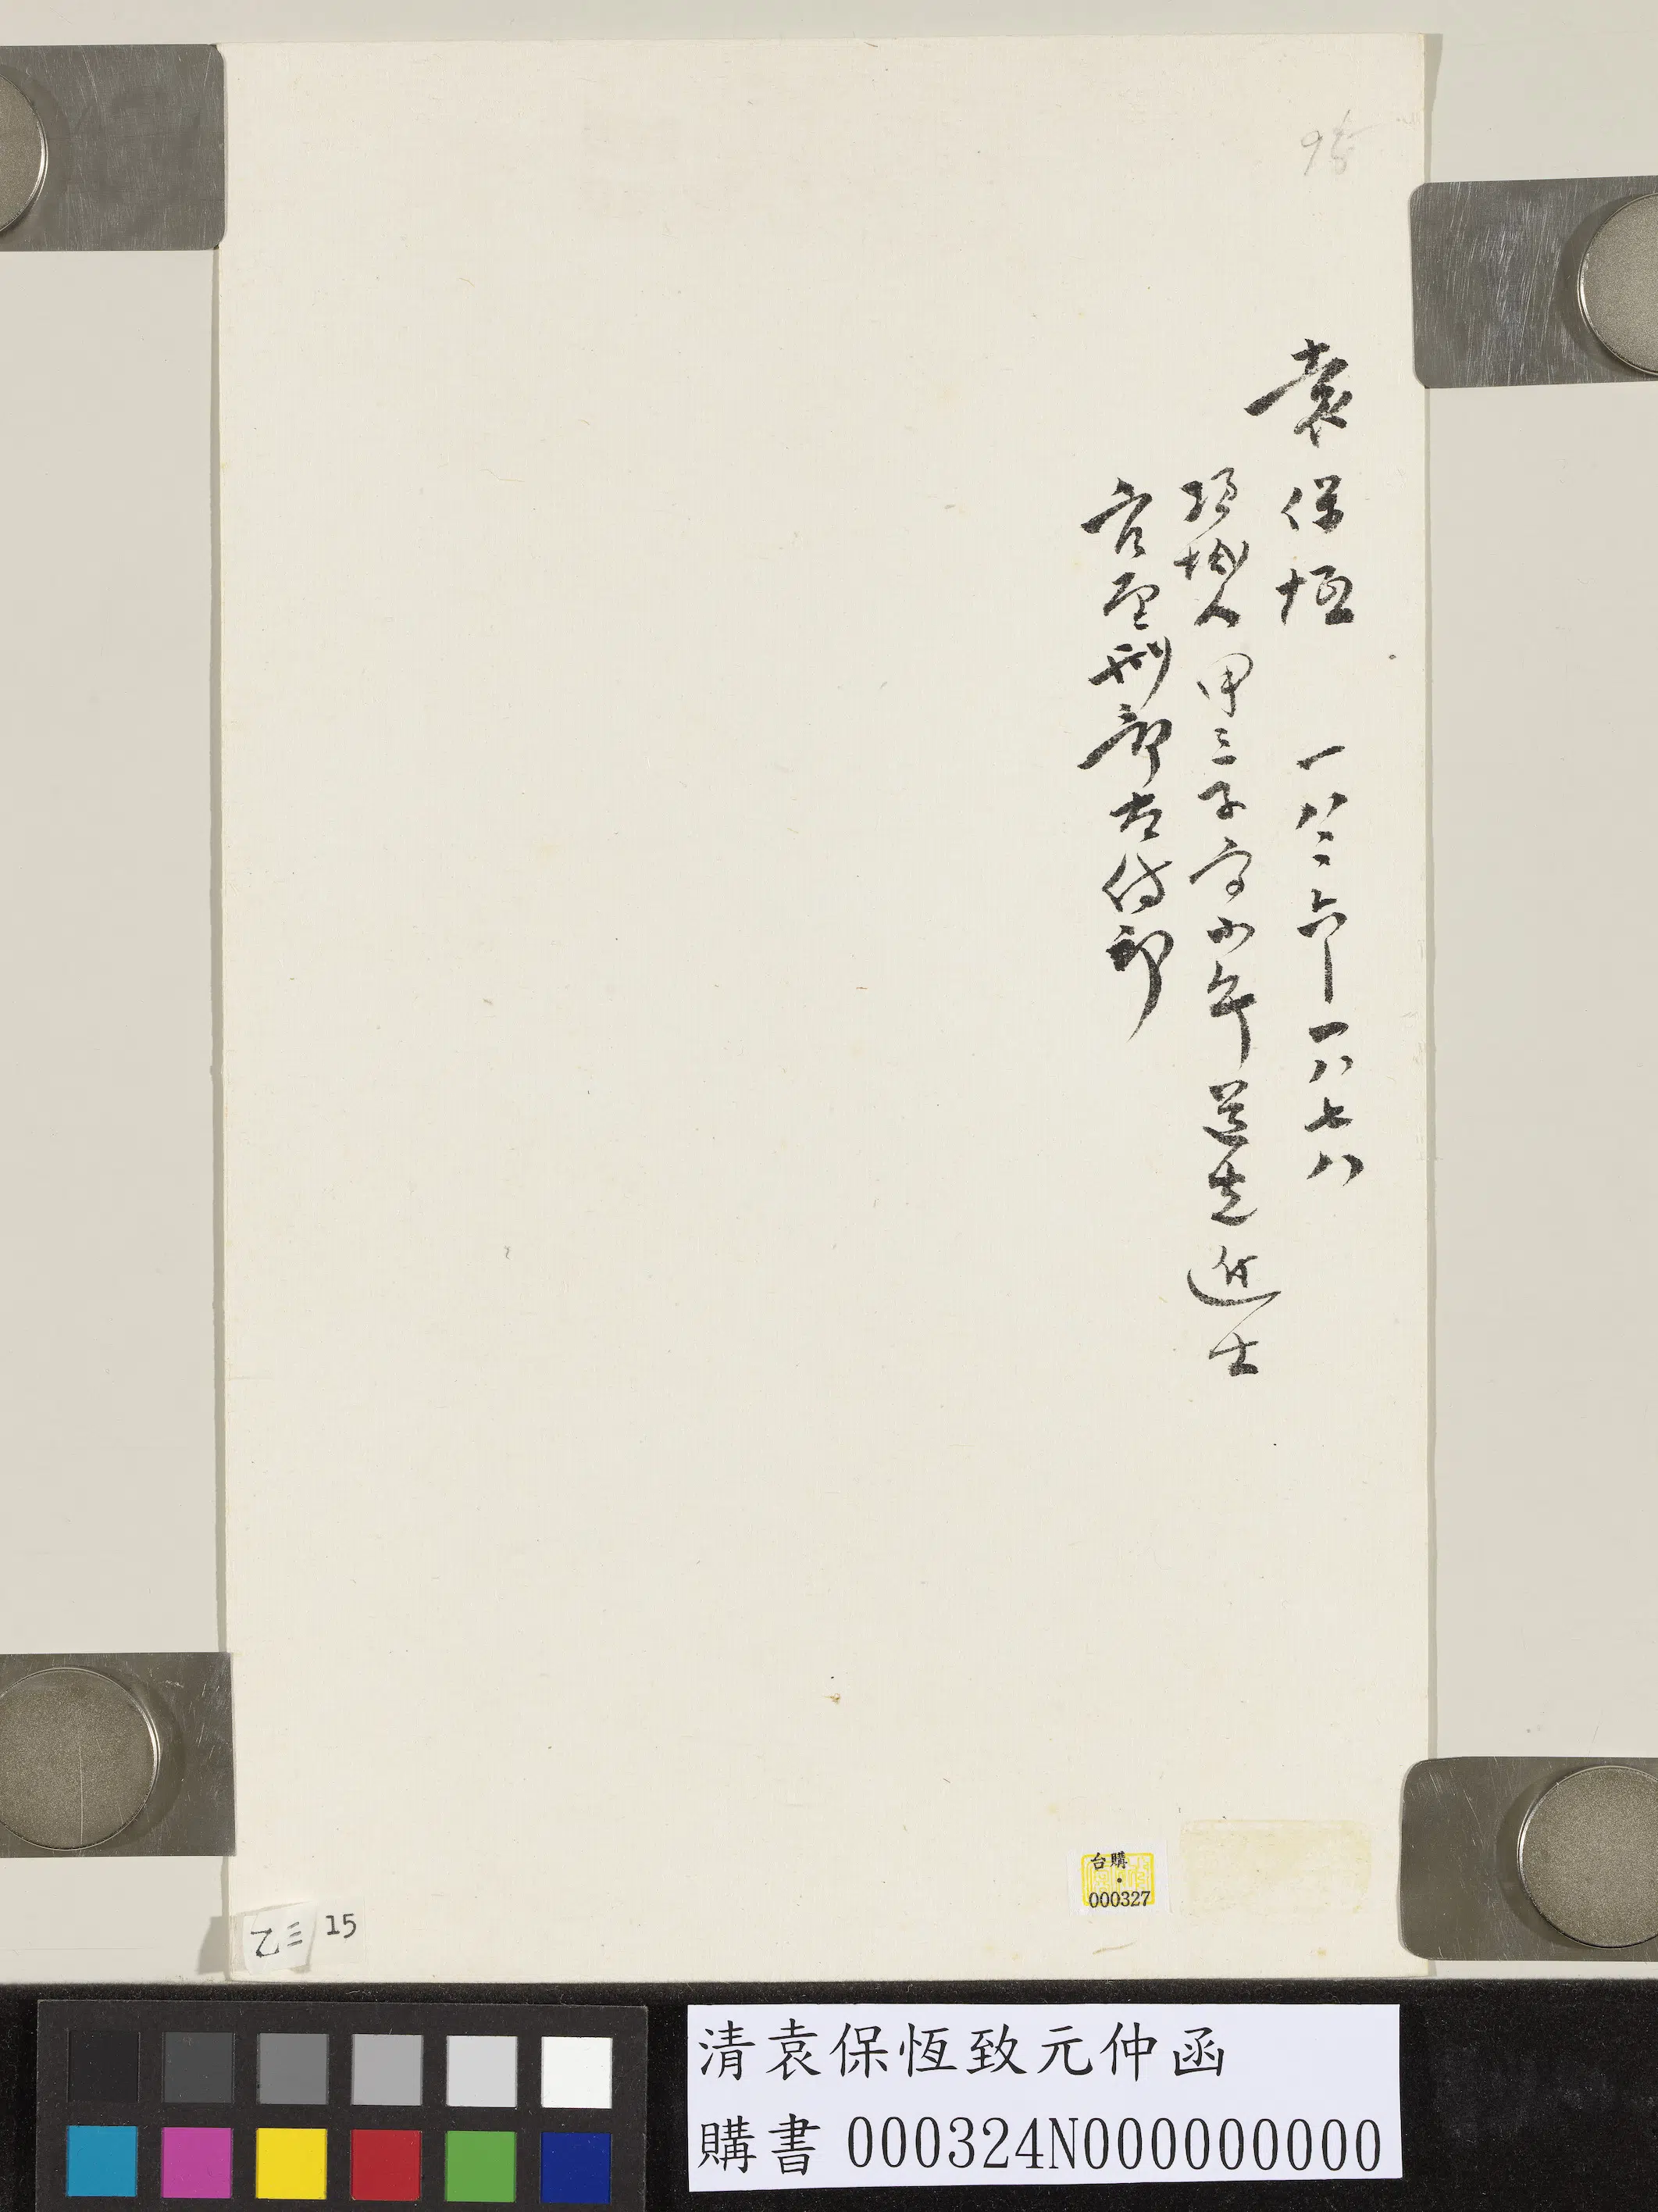 98
袁保恆 一八二六—一八七八
項城人甲三子字小午道光進士
官至刑部左侍郎
台購
000327
乙三 15
清袁保恆致元仲函
購書 000324N000000000